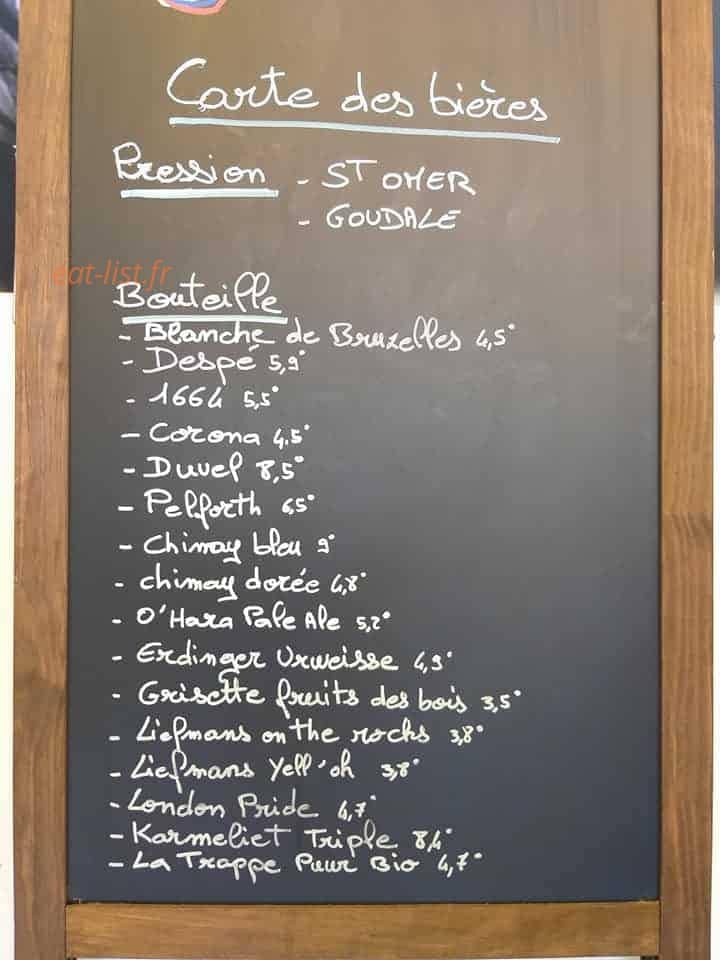 Carte des bières
Pression - ST OMER
- GOUDALE
eat-list.fr
Bouteille
- Blanche de Bruxelles 4,5°
- Despé 5,9°
- 1664 5,5°
- Corona 4.5°
- Duvel 8,5°
- Pelforth 6,5°
- Chimay bleu 9°
- chimay dorée 4,8°
- O'Hara Pale Ale 5,2°
- Erdinger Urweisse 4,9°
- Grisette fruits des bois 3,5°
- Liefmans on the rocks 3,8°
- Liefmans Yell'oh 3,8°
- London Pride 4,7°
- Karmeliet Triple 8,4°
- La Trappe Puur Bio 4,7°